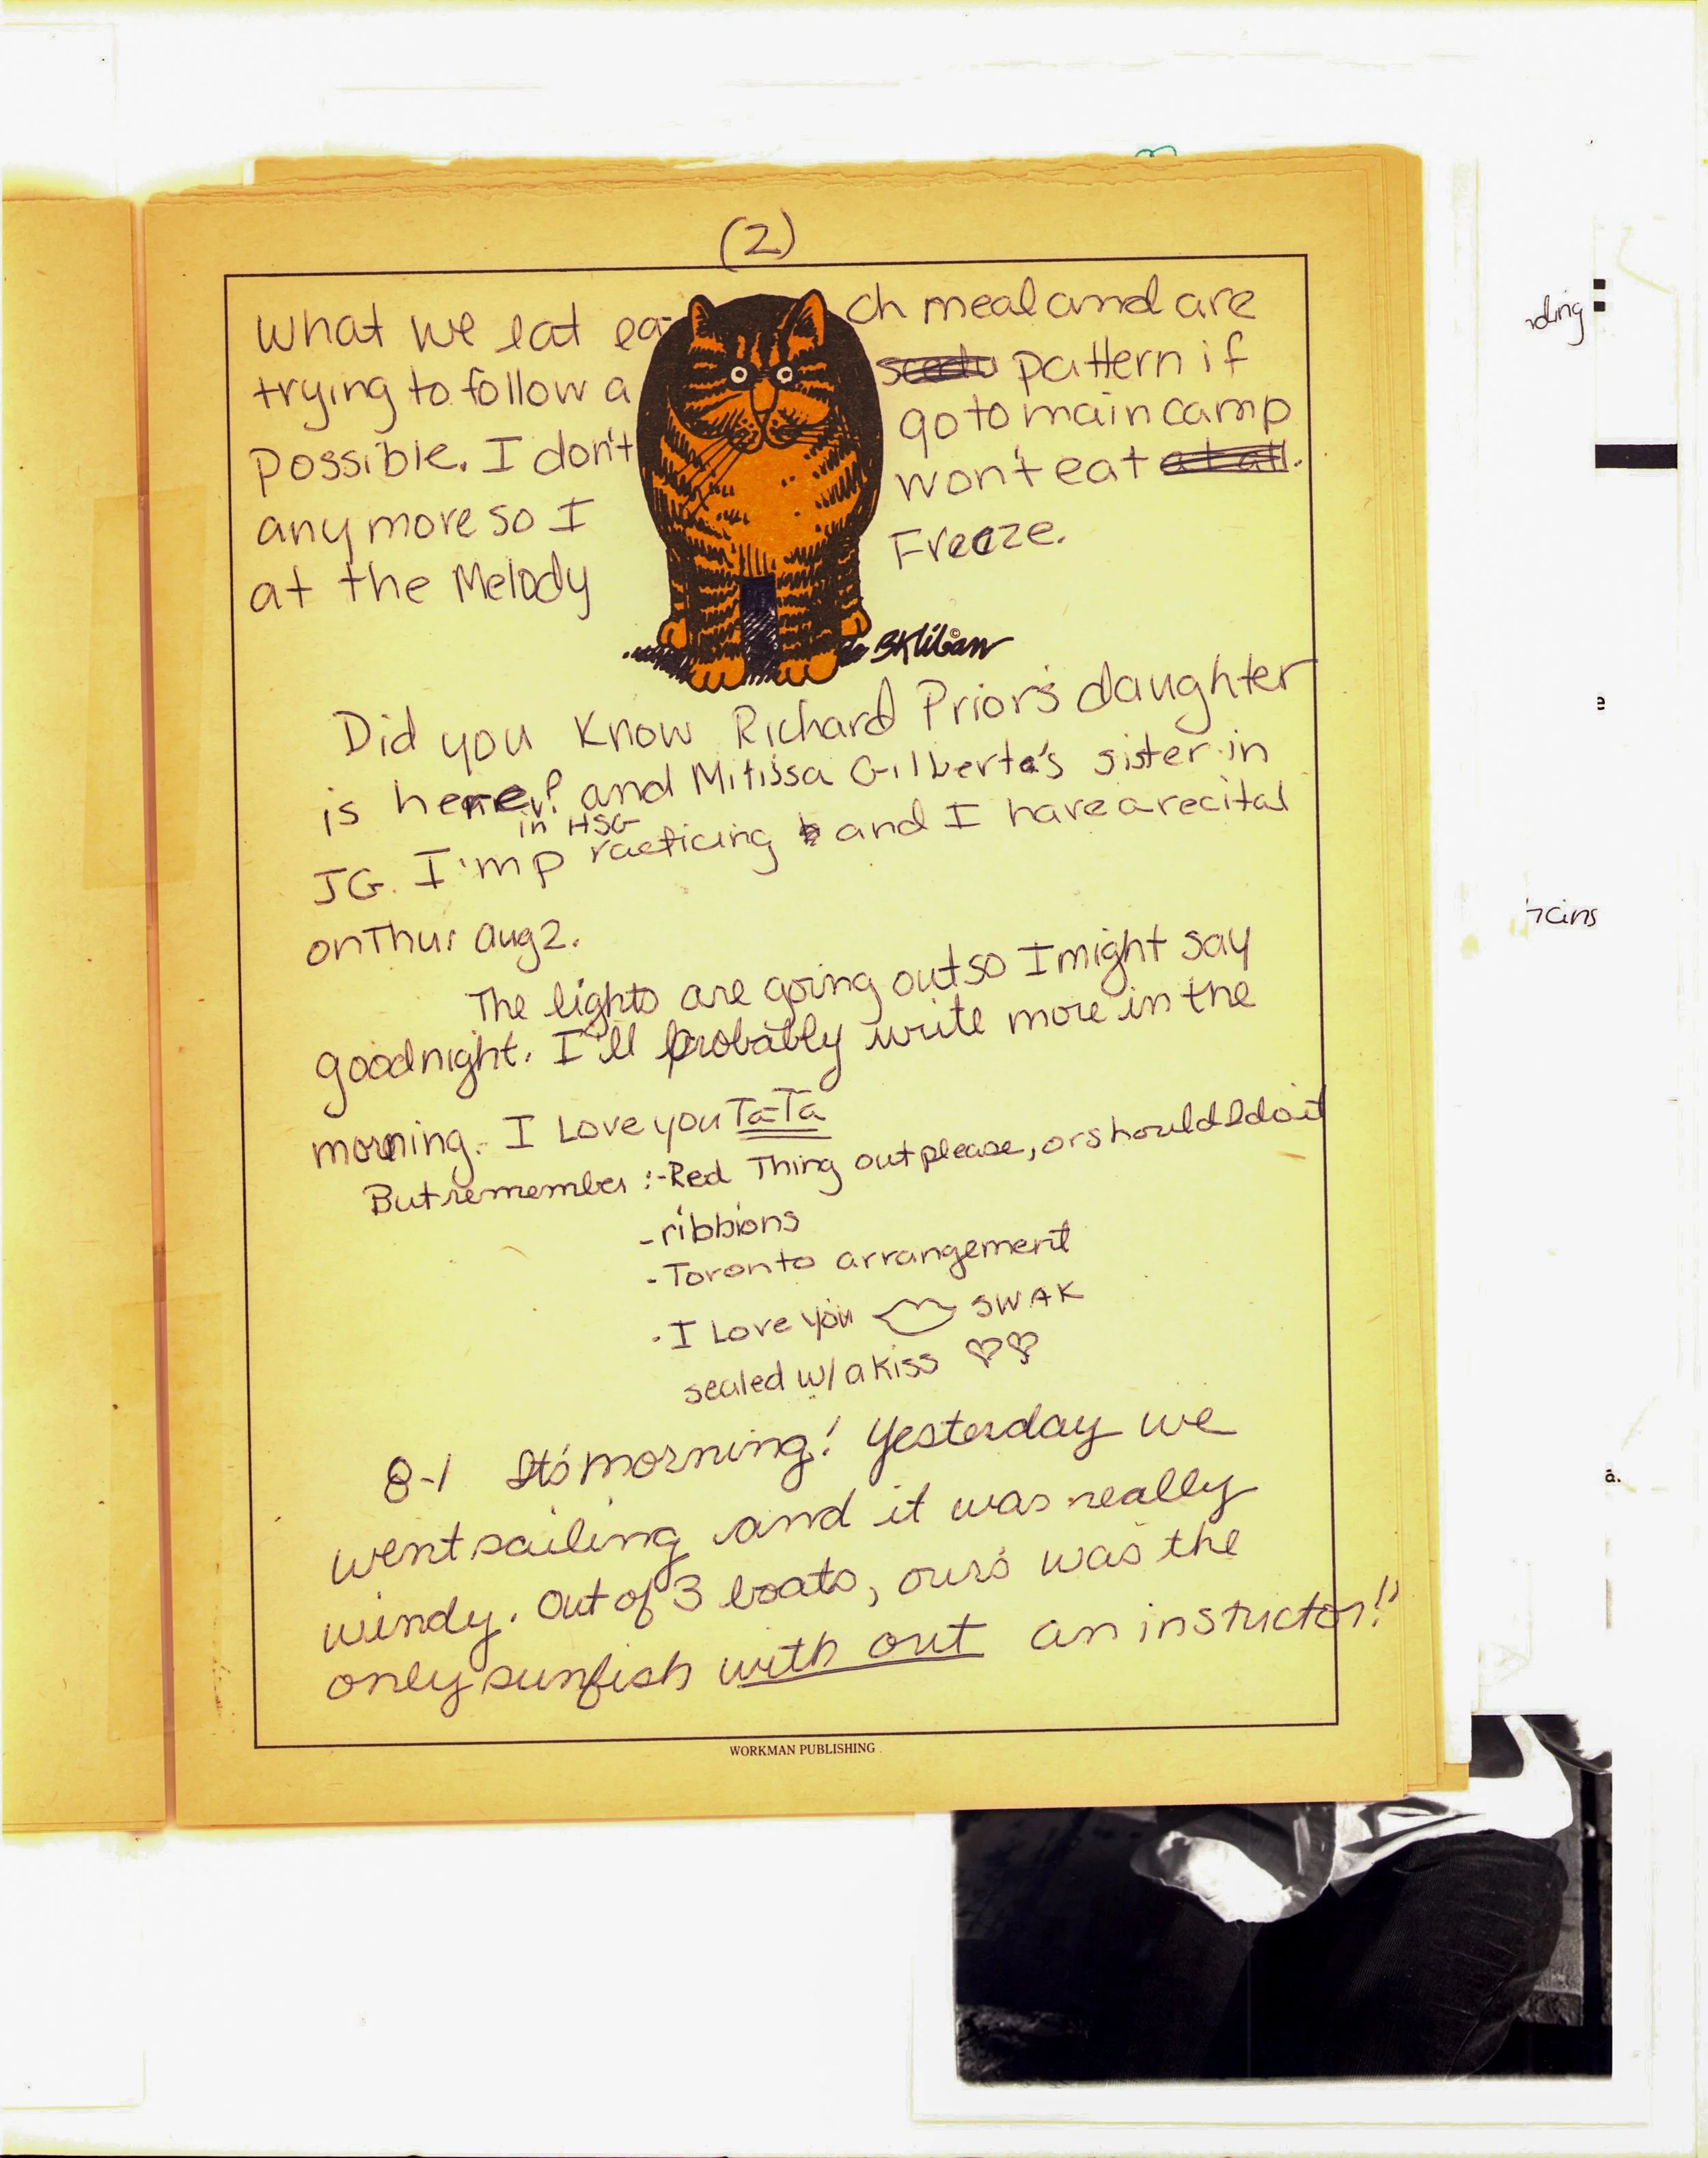 (2)
What we eat each meal and are
trying to follow a pattern if
possible. I don't go to main camp
any more so I won't eat
at the Melody Freeze.
BKliban ©
Did you know Richard Prior's daughter
is here? and Mitissa Gilberte's sister in
in HSG
JG. I'm practicing and I have a recital
on Thur Aug 2.
The lights are going out so I might say
goodnight. I'll probably write more in the
morning. I Love you Ta-Ta
But remember :-Red Thing out please, or should I do it
-ribbions
-Toronto arrangement
-I Love you SWAK
sealed w/ a kiss
8-1 It's morning! Yesterday we
went sailing and it was really
windy. Out of 3 boats, ours was the
only sunfish with out an instuctor!!
WORKMAN PUBLISHING